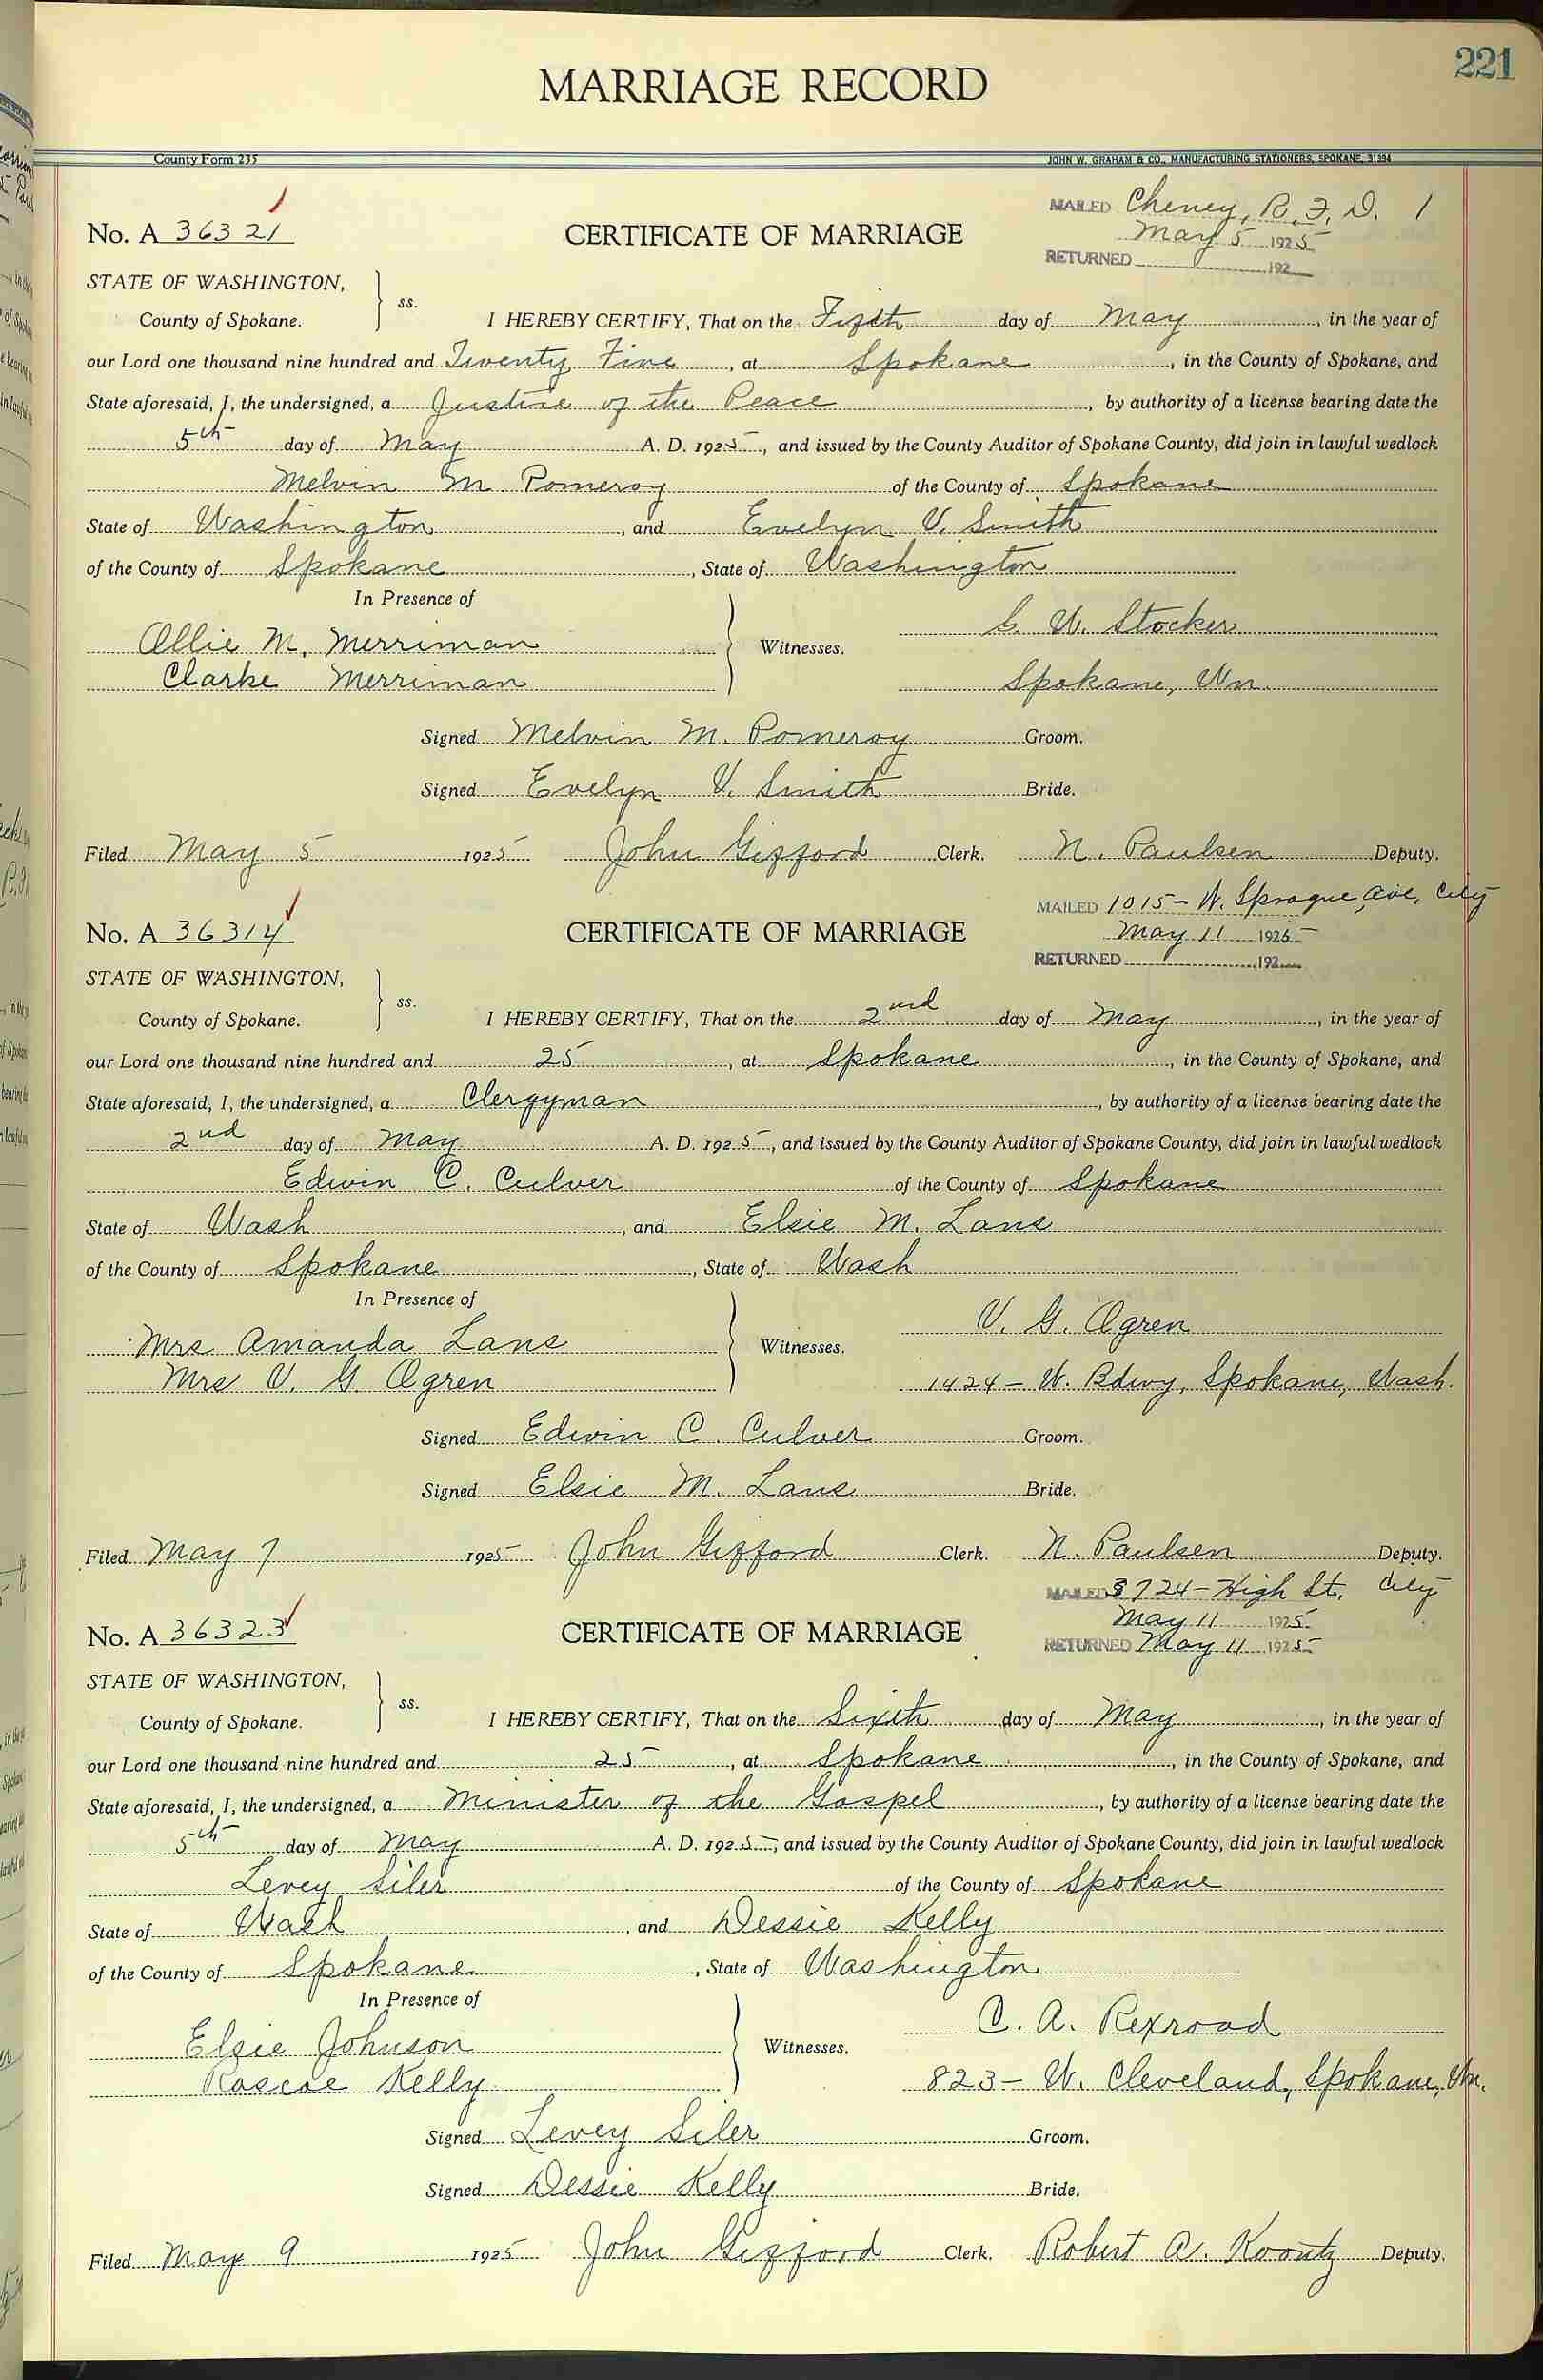 221
MARRIAGE RECORD
County Form 235 JOHN W. GRAHAM & CO., MANUFACTURING STATIONERS, SPOKANE, 31394
MAILED Cheney, R. F. D. 1
No. A 36321 CERTIFICATE OF MARRIAGE May 5 1925
RETURNED 192
STATE OF WASHINGTON,
County of Spokane. ss. I HEREBY CERTIFY, That on the Fifth day of May, in the year of
our Lord one thousand nine hundred and Twenty Five, at Spokane, in the County of Spokane, and
State aforesaid, I, the undersigned, a Justice of the Peace, by authority of a license bearing date the
5th day of May A. D. 1925, and issued by the County Auditor of Spokane County, did join in lawful wedlock
Melvin M Pomeroy of the County of Spokane
State of Washington, and Evelyn V. Smith
of the County of Spokane, State of Washington
In Presence of
Ollie M. Merriman Witnesses. S. W. Stocker
Clarke Merriman Spokane, Wn.
Signed Melvin M. Pomeroy Groom.
Signed Evelyn V. Smith Bride.
Filed May 5 1925 John Gifford Clerk. N. Paulsen Deputy.
MAILED 1015- W. Sprague Ave, City
No. A 36314 CERTIFICATE OF MARRIAGE May 11 1925
RETURNED 192
STATE OF WASHINGTON,
County of Spokane. ss. I HEREBY CERTIFY, That on the 2nd day of May, in the year of
our Lord one thousand nine hundred and 25, at Spokane, in the County of Spokane, and
State aforesaid, I, the undersigned, a Clergyman, by authority of a license bearing date the
2nd day of May A. D. 1925, and issued by the County Auditor of Spokane County, did join in lawful wedlock
Edwin C. Culver of the County of Spokane
State of Wash, and Elsie M. Lans
of the County of Spokane, State of Wash
In Presence of
Mrs Amanda Lans Witnesses. V. G. Ogren
Mrs V. G. Ogren 1424- W. Bdwy, Spokane, Wash.
Signed Edwin C. Culver Groom.
Signed Elsie M. Lans Bride.
Filed May 7 1925 John Gifford Clerk. N. Paulsen Deputy.
MAILED 3724- High St. City
No. A 36323 CERTIFICATE OF MARRIAGE May 11 1925
RETURNED May 11 1925
STATE OF WASHINGTON,
County of Spokane. ss. I HEREBY CERTIFY, That on the Sixth day of May, in the year of
our Lord one thousand nine hundred and 25, at Spokane, in the County of Spokane, and
State aforesaid, I, the undersigned, a Minister of the Gospel, by authority of a license bearing date the
5th day of May A. D. 1925, and issued by the County Auditor of Spokane County, did join in lawful wedlock
Levey Siler of the County of Spokane
State of Wash, and Dessie Kelly
of the County of Spokane, State of Washington
In Presence of
Elsie Johnson Witnesses. C. A. Rexroad
Roscoe Kelly 823- W. Cleveland, Spokane, Wn.
Signed Levey Siler Groom.
Signed Dessie Kelly Bride.
Filed May 9 1925 John Gifford Clerk. Robert A. Koontz Deputy.